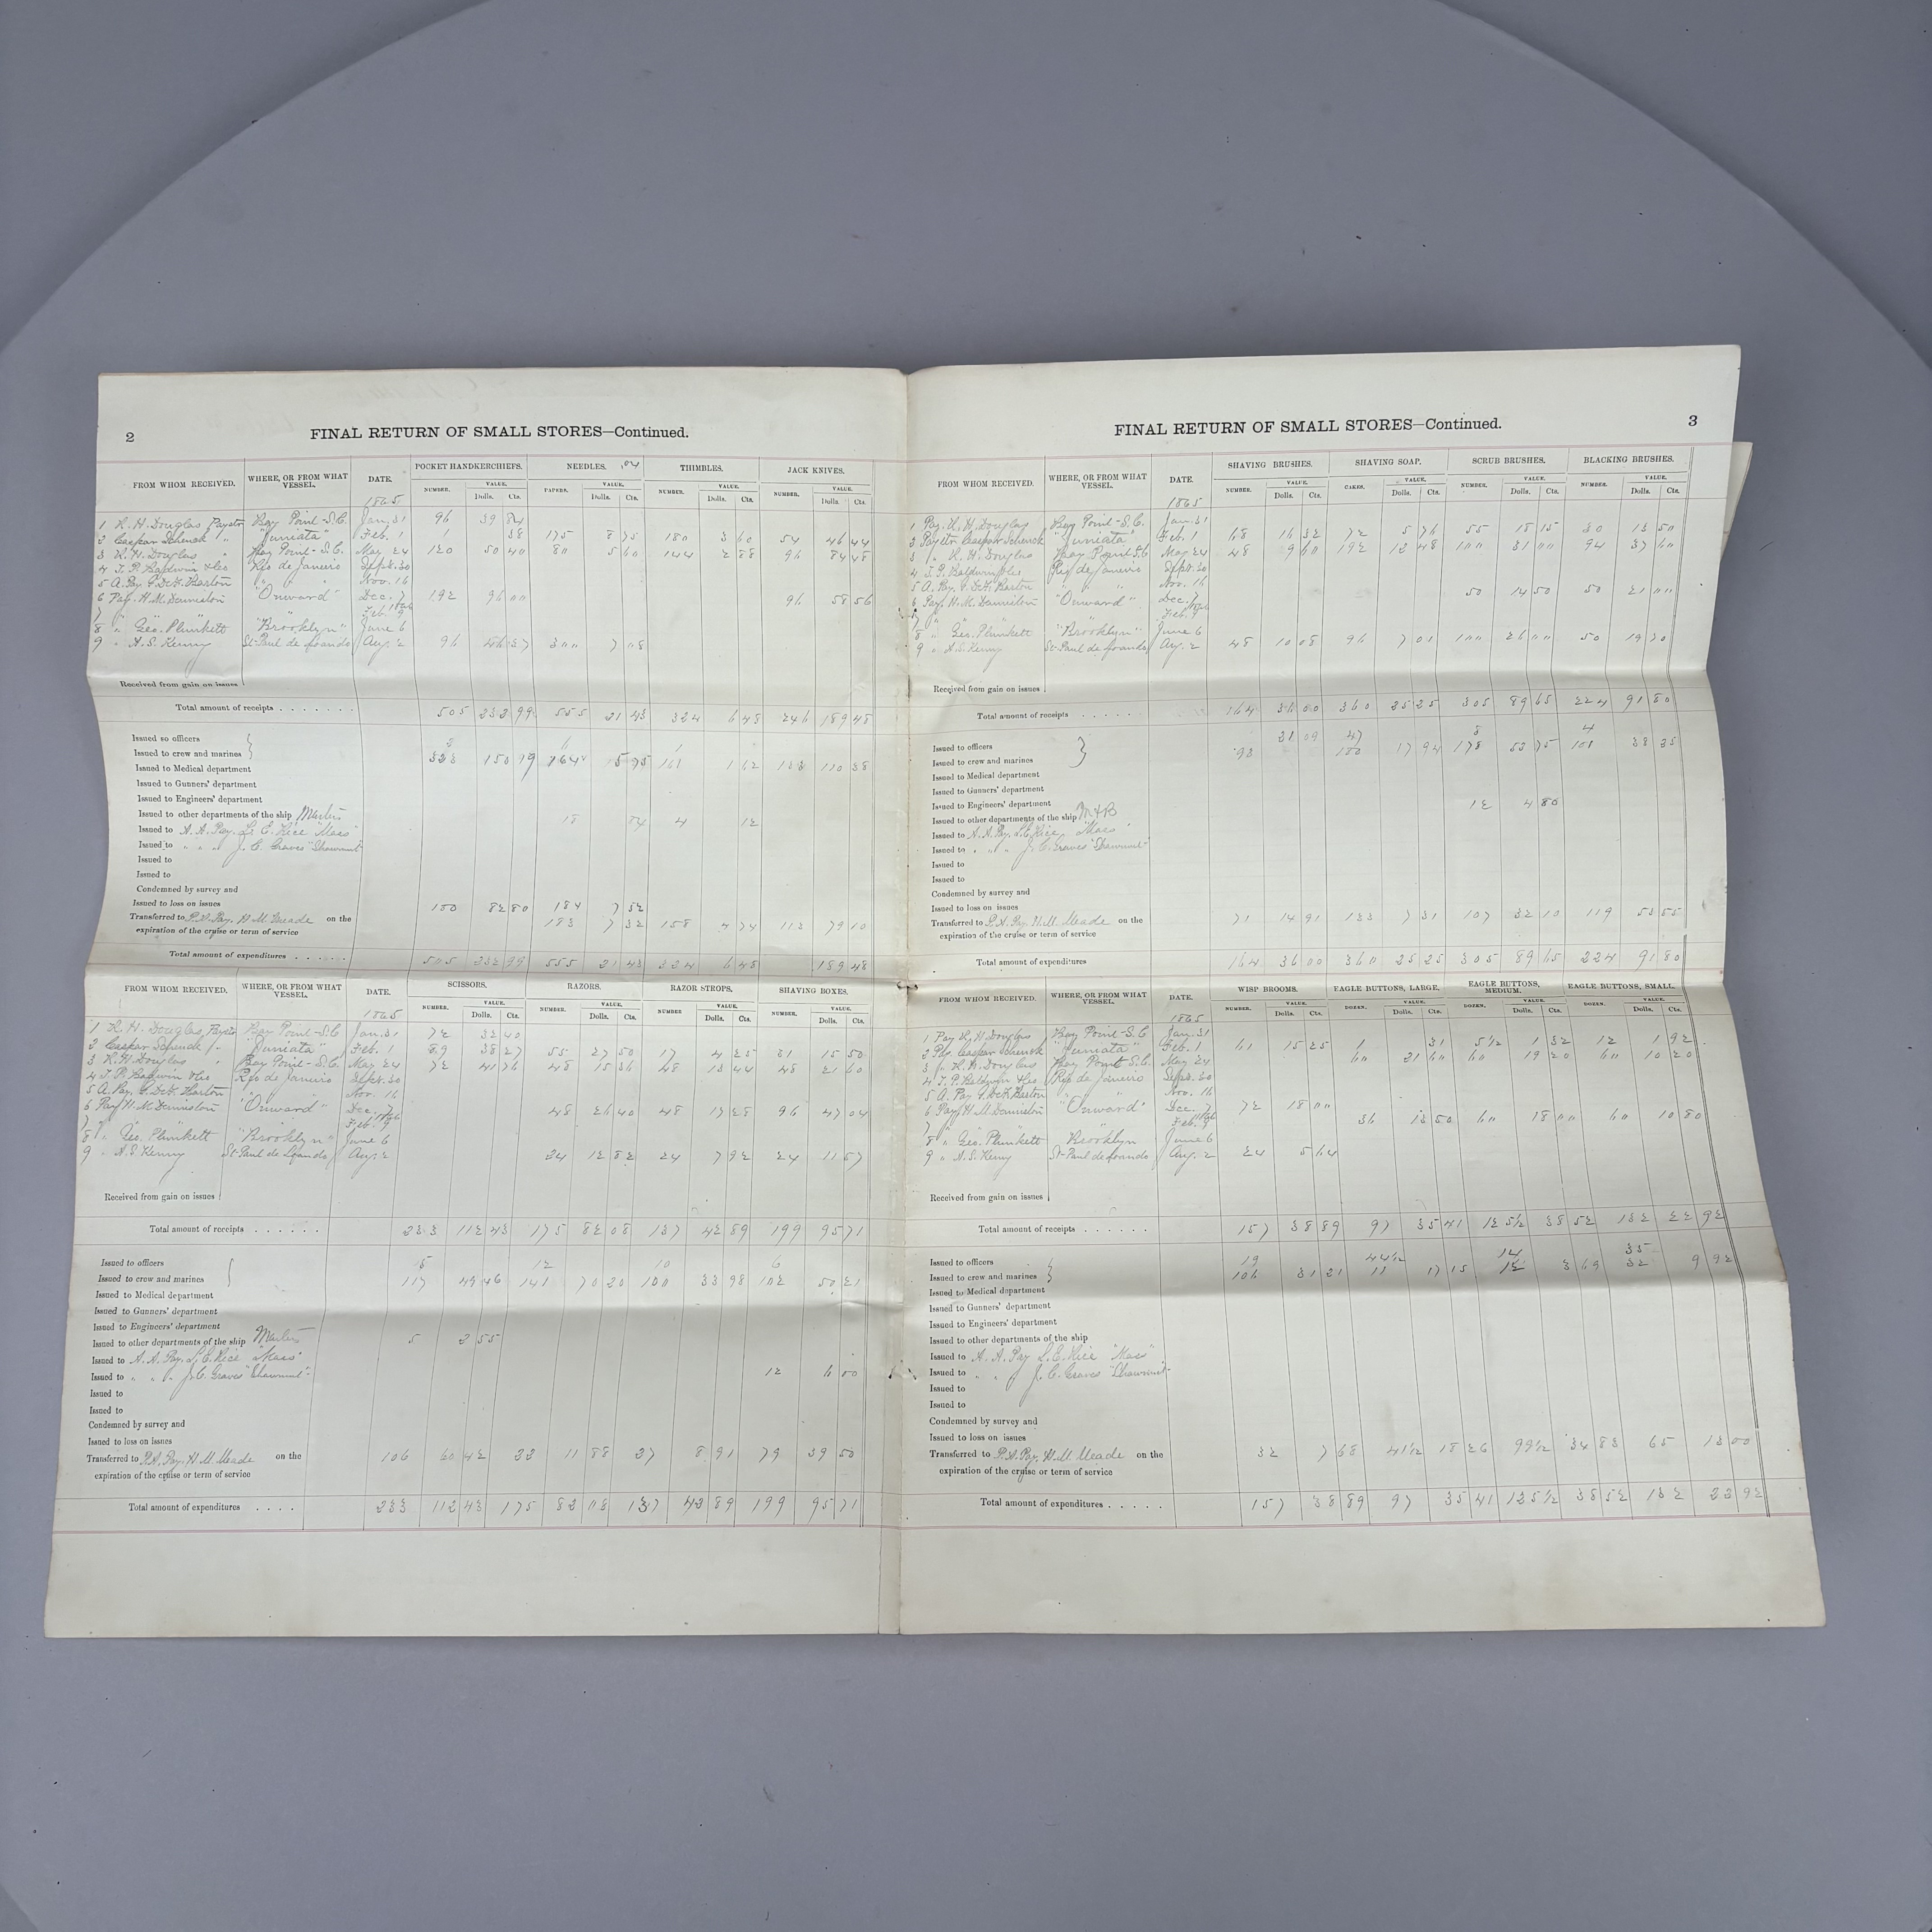 2
FINAL RETURN OF SMALL STORES—Continued.
FROM WHOM RECEIVED. WHERE, OR FROM WHAT VESSEL. DATE. POCKET HANDKERCHIEFS. NEEDLES. .04 THIMBLES. JACK KNIVES.
NUMBER. VALUE. Dolls. Cts. PAPERS. VALUE. Dolls. Cts. NUMBER. VALUE. Dolls. Cts. NUMBER. VALUE. Dolls. Cts.
1865
1 R. H. Douglas Paystr Bay Point-S.C. Jan. 31 96 39 84
2 Caspar Schenck " "Juniata" Feb. 1 1 38 175 8 75 180 3 60 54 46 44
3 R. H. Douglas " Bay Point-S.C. May 24 120 50 40 80 5 60 144 2 88 96 84 48
4 J. P. Baldwin &Co Rio de Janeiro Sept. 30
5 A. Pay. Barton " " " Nov. 16
6 Pay. H. M. Denniston "Onward" Dec. 7 192 96 00 96 58 56
7 " " Feb. 9 1866
8 " Geo. Plunkett "Brooklyn" June 6
9 " A. S. Kenny St-Paul de Loando Aug. 2 96 46 37 300 7 08
Received from gain on issues
Total amount of receipts . . . . . . . 505 232 99 555 21 43 324 6 48 246 189 48
Issued so officers
Issued to crew and marines 150 19 164 5 75 161 1 62 133 110 38
Issued to Medical department
Issued to Gunners' department
Issued to Engineers' department
Issued to other departments of the ship Masters 18 4 12
Issued to A. A. Pay. L. E. Rice "Maas"
Issued to " " " J. C. Graves "Shawmut"
Issued to
Issued to
Condemned by survey and
Issued to loss on issues 180 82 80 184 7 32
Transferred to P.A. Pay. H. M. Meade on the 183 7 32 158 4 74 113 79 10
expiration of the cruise or term of service
Total amount of expenditures . . . . . . 505 232 99 555 21 43 324 6 48 189 48
FROM WHOM RECEIVED. WHERE, OR FROM WHAT VESSEL. DATE. SCISSORS. RAZORS. RAZOR STROPS. SHAVING BOXES.
NUMBER. VALUE. Dolls. Cts. NUMBER VALUE. Dolls. Cts. NUMBER VALUE. Dolls. Cts. NUMBER. VALUE. Dolls. Cts.
1865
1 R. H. Douglas, Paystr Bay Point-S.C Jan. 31 72 32 40
2 Caspar Schenck " "Juniata" Feb. 1 89 38 27 55 27 50 17 4 25 31 15 50
3 R. H. Douglas " Bay Point-S.C. May 24 72 41 76 48 15 36 48 13 44 48 21 60
4 J. P. Baldwin &Co Rio de Janeiro Sept. 30
5 A. Pay. Barton " " Nov. 16
6 Pay H. M. Denniston "Onward" Dec. 7 48 26 40 48 17 28 96 47 04
7 " Feb. 9 1866
8 " Geo. Plunkett "Brooklyn" June 6
9 " A. S. Kenny St-Paul de Loando Aug. 2 24 12 82 24 7 92 24 11 57
Received from gain on issues
Total amount of receipts . . . . . . 233 112 43 175 82 08 137 42 89 199 95 71
Issued to officers 5 12 10 6
Issued to crew and marines 117 49 46 141 70 20 100 33 98 102 50 21
Issued to Medical department
Issued to Gunners' department
Issued to Engineers' department
Issued to other departments of the ship Masters 5 2 55
Issued to A. A. Pay. L. E. Rice "Maas"
Issued to " " " J. C. Graves "Shawmut" 12 6 00
Issued to
Issued to
Condemned by survey and
Issued to loss on issues
Transferred to P.A. Pay. H. M. Meade on the 106 60 42 22 11 88 27 8 91 79 39 50
expiration of the cruise or term of service
Total amount of expenditures . . . . 233 112 43 175 82 08 137 42 89 199 95 71
3
FINAL RETURN OF SMALL STORES—Continued.
FROM WHOM RECEIVED. WHERE, OR FROM WHAT VESSEL. DATE. SHAVING BRUSHES. SHAVING SOAP. SCRUB BRUSHES. BLACKING BRUSHES.
NUMBER. VALUE. Dolls. Cts. CAKES. VALUE. Dolls. Cts. NUMBER. VALUE. Dolls. Cts. NUMBER. VALUE. Dolls. Cts.
1865
1 Pay. R. H. Douglas Bay Point-S.C. Jan. 31
2 Paystr Caspar Schenck "Juniata" Feb. 1 68 16 32 72 5 76 55 18 15 30 13 50
3 " R. H. Douglas Bay Point S.C May 24 48 9 60 192 12 48 100 31 00 94 37 60
4 J. P. Baldwin &Co Rio de Janeiro Sept. 30
5 A. Pay. Barton " Nov. 16
6 Pay. H. M. Denniston "Onward" Dec. 7 50 14 50 50 21 00
7 Feb. 9 1866
8 " Geo. Plunkett "Brooklyn" June 6
9 " A. S. Kenny St-Paul de Loando Aug. 2 48 10 08 96 7 01 100 26 00 50 19 70
Received from gain on issues
Total amount of receipts . . . . . . 164 36 00 360 25 25 305 89 65 224 91 80
Issued to officers 21 09 47 8 4
Issued to crew and marines 93 17 94 178 52 75 101 38 25
Issued to Medical department
Issued to Gunners' department
Issued to Engineers' department 12 4 80
Issued to other departments of the ship M&B
Issued to A. A. Pay. L. E. Rice "Maas"
Issued to " " " J. C. Graves "Shawmut"
Issued to
Issued to
Condemned by survey and
Issued to loss on issues
Transferred to P. A. Pay. H. M. Meade on the 71 14 91 133 7 31 107 32 10 119 53 55
expiration of the cruise or term of service
Total amount of expenditures 164 36 00 360 25 25 305 89 65 224 91 80
FROM WHOM RECEIVED. WHERE, OR FROM WHAT VESSEL. DATE. WISP BROOMS. EAGLE BUTTONS, LARGE. EAGLE BUTTONS, MEDIUM. EAGLE BUTTONS, SMALL.
NUMBER. VALUE. Dolls. Cts. DOZEN. VALUE. Dolls. Cts. DOZEN. VALUE. Dolls. Cts. DOZEN. VALUE. Dolls. Cts.
1865
1 Pay R. H. Douglas Bay Point-S.C Jan. 31
2 Pay. Caspar Schenck "Juniata" Feb. 1 61 15 25 1 31 5 1/2 1 32 12 1 92
3 " R. H. Douglas Bay Point S.C. May 24 60 21 60 60 19 20 60 10 20
4 J. P. Baldwin &Co Rio de Janeiro Sept. 30
5 A. Pay Barton " Nov. 16
6 Pay H. M. Denniston "Onward" Dec. 7 72 18 00
7 " Feb. 9 1866 36 13 50 60 18 00 60 10 80
8 " Geo. Plunkett Brooklyn June 6
9 " A. S. Kenny St-Paul de Loando Aug. 2 24 5 64
Received from gain on issues
Total amount of receipts . . . . . . 157 38 89 97 35 41 125 1/2 38 52 132 22 92
Issued to officers 19 44 1/2 14 35
Issued to crew and marines 106 31 21 11 17 15 12 3 69 32 9 92
Issued to Medical department
Issued to Gunners' department
Issued to Engineers' department
Issued to other departments of the ship
Issued to A. A. Pay L. E. Rice "Maas"
Issued to " " " J. C. Graves "Shawmut"
Issued to
Issued to
Condemned by survey and
Issued to loss on issues
Transferred to P. A. Pay. H. M. Meade on the 32 7 68 41 1/2 18 26 99 1/2 34 83 65 13 00
expiration of the cruise or term of service
Total amount of expenditures . . . . . 157 38 89 97 35 41 125 1/2 38 52 132 22 92